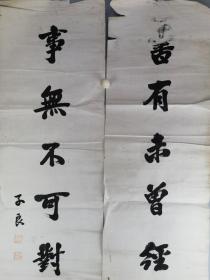 書有未曾經
事無不可對
子良